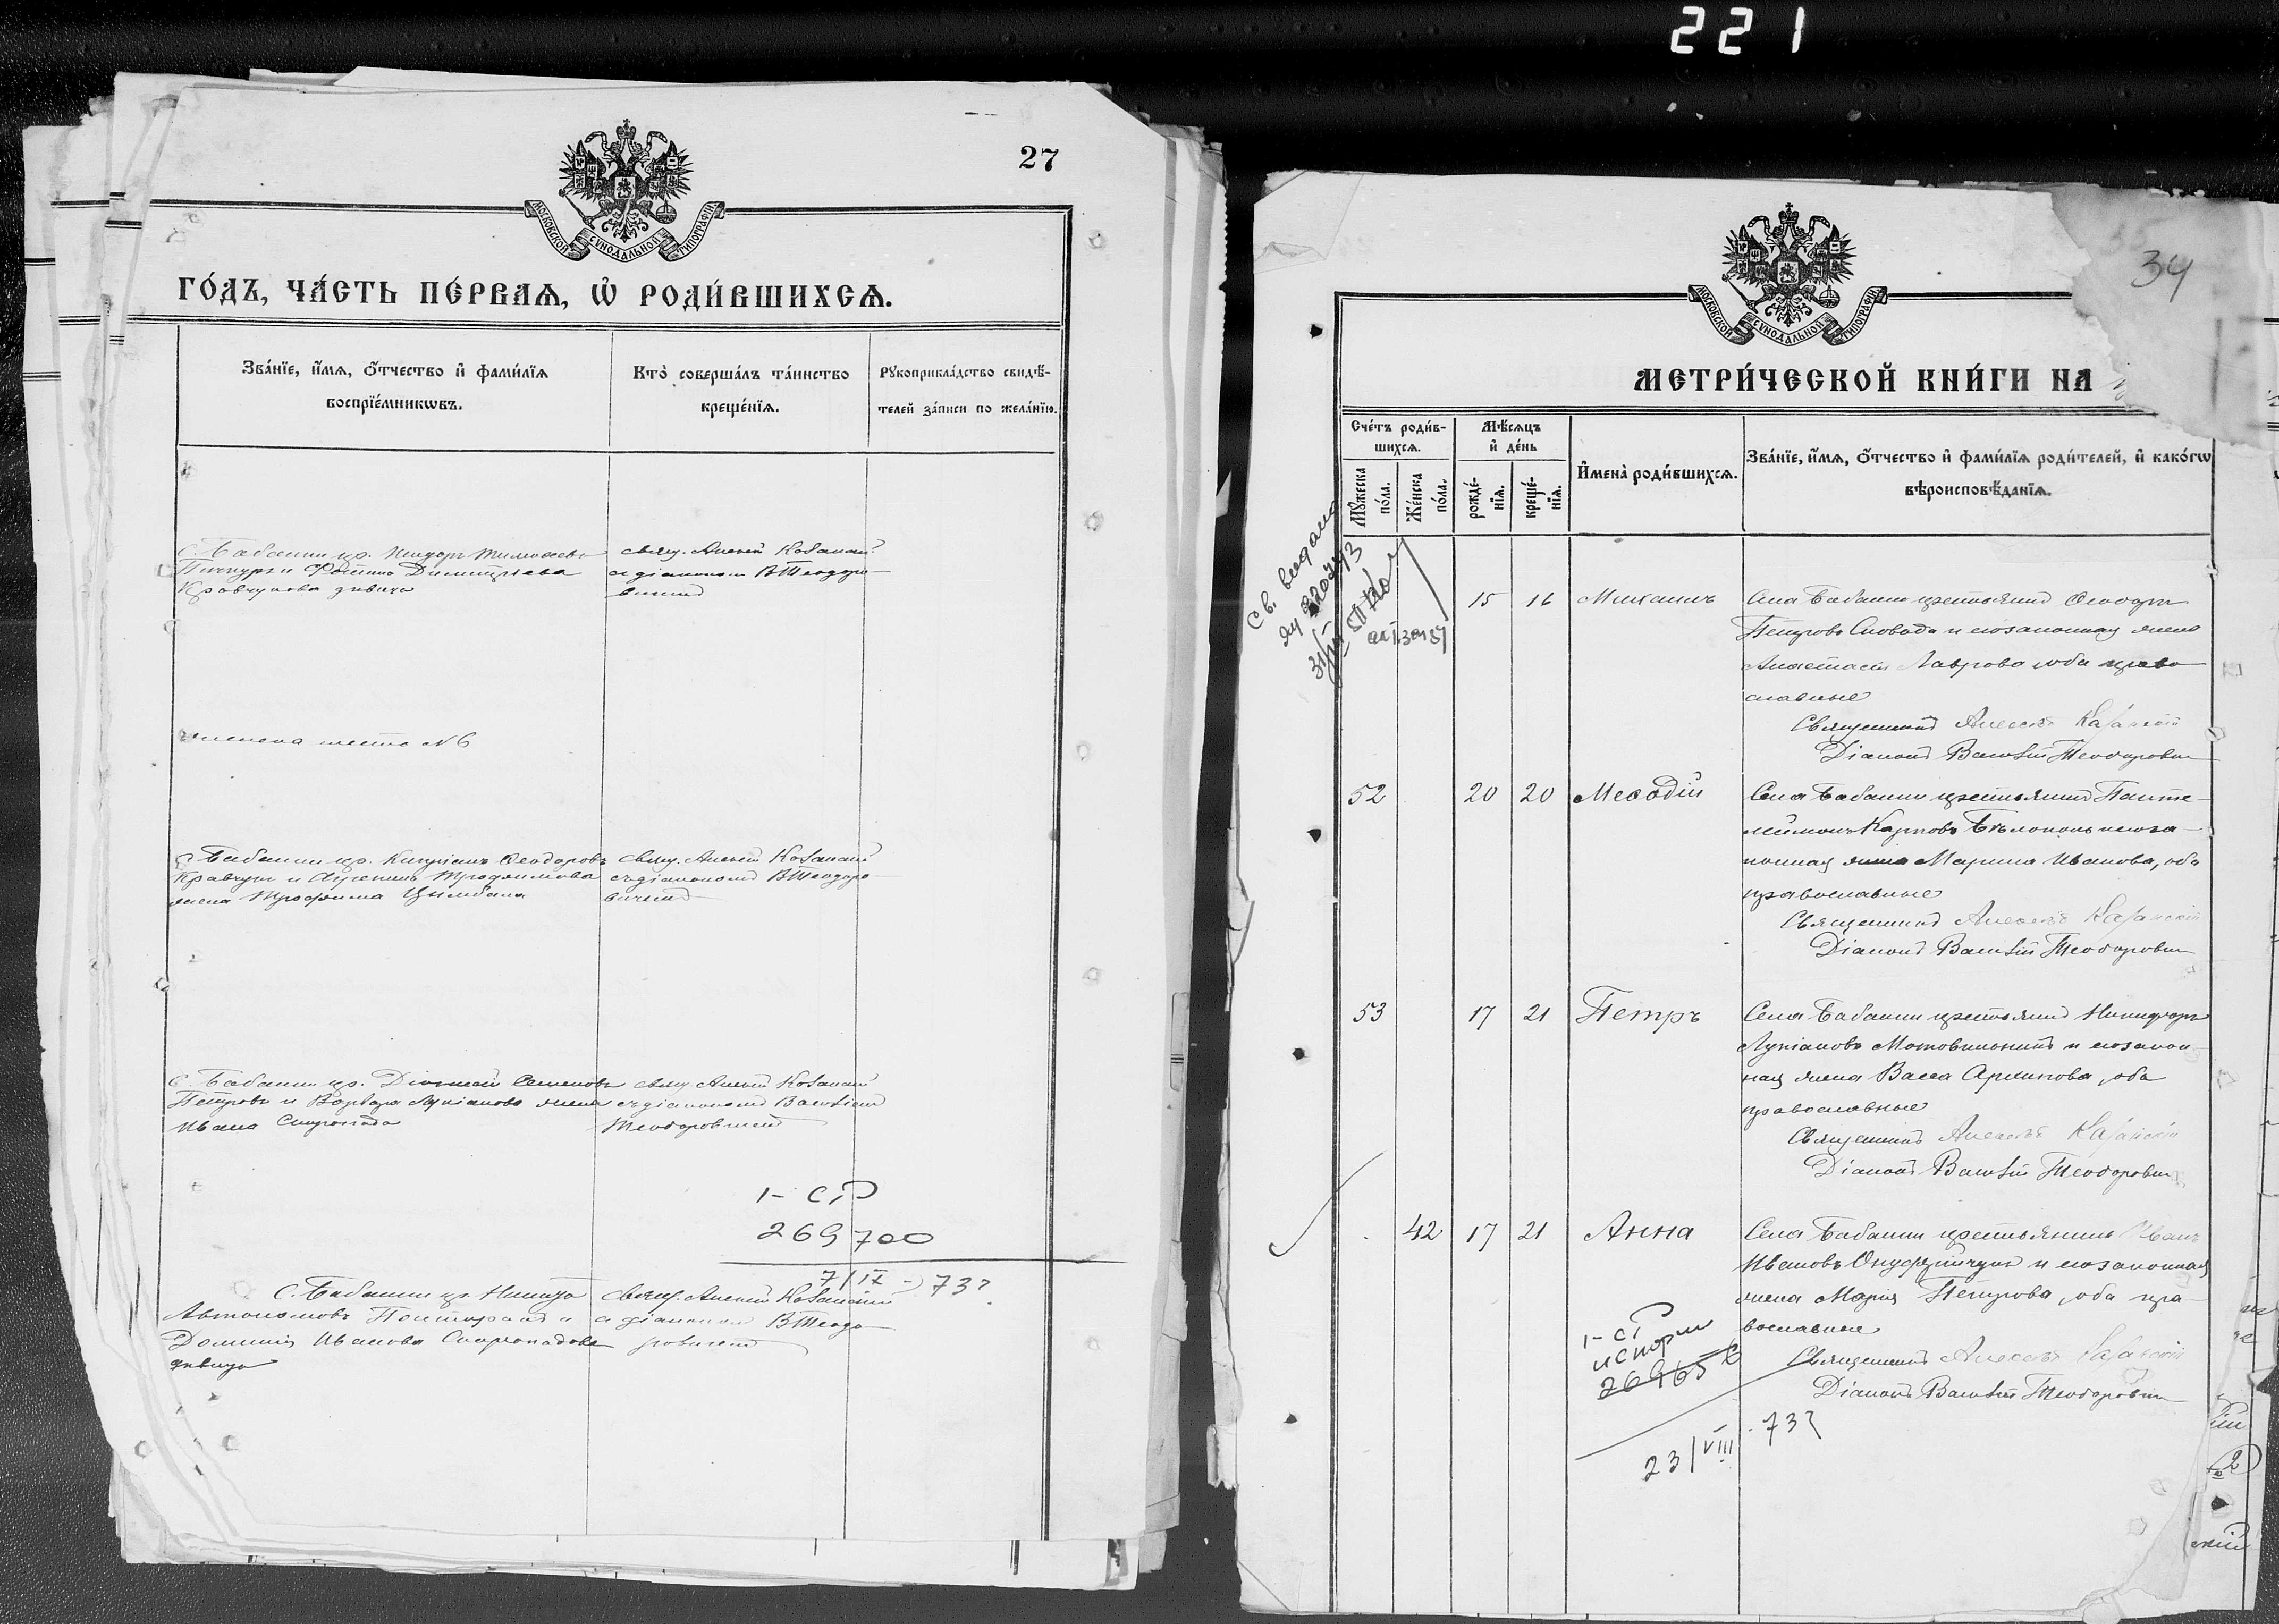 221
27
МОСКОВСКОЙ СѴНОДАЛЬНОЙ ТИПОГРАФІИ
ГО́ДЪ, ЧА́СТЬ ПЕ́РВАѦ, Ѽ РОДИ́ВШИХСѦ.
Зва́нїе, и҆́мѧ, ѻ҆́тчество и҆ фами́лїѧ
воспрїе́мникѡвъ.
Кто̀ соверша́лъ та́инство
креще́нїѧ.
Рꙋкоприкла́дство свидѣ́-
телей за́писи по жела́нїю.
С. Бабанки кр.
Кравчукова дѣвица
свящ. Алексій Казанскій
с діакономъ В Теодоро-
вичемъ
С. Бабанки кр. Кипріанъ Ѳеодоровъ
Кравчукъ и Трофимова
жена Трофима Цымбала
свящ. Алексій Казанскій
съ діакономъ В Теодоро-
вичемъ
С. Бабанки кр. Семеновъ
Петровъ и Варвара Лукіанова жена
Ивана Скоропада
свящ. Алексій Казанскій
съ діакономъ Василіемъ
Теодоровичемъ
1- СР
269700
7/IX - 73?
С. Бабанки кр. Никита
Автономовъ и
Домникія Иванова Скоропадова
дѣвица
свящ. Алексій Казанскій
с діакономъ В Теодо
ровичемъ
34
МОСКОВСКОЙ СѴНОДАЛЬНОЙ ТИПОГРАФІИ
МЕТРИ́ЧЕСКОЙ КНИ́ГИ НА
Сче́тъ роди́в-
шихсѧ.
Мꙋ́жеска
по́ла.
Же́нска
по́ла.
Мѣ́сѧцъ
и҆ де́нь
рожде́-
нїѧ.
креще́-
нїѧ.
И҆мена̀ роди́вшихсѧ.
Зва́нїе, и҆́мѧ, ѻ҆́тчество и҆ фами́лїѧ роди́телей, и҆ како́гѡ
вѣроисповѣ́данїѧ.
Св. выдано
15 16 Михаилъ
Села Бабанки крестьянинъ Ѳеодоръ
Петровъ Сковода и его законная жена
Анастасія Лаврова, оба право
славные
Священникъ Алексій Казанскій
Діаконъ Василій Теодоровичъ
52 20 20 Меѳодій
Села Бабанки крестьянинъ Панте-
леймонъ Карповъ Бѣлоконь и его за-
конная жена Марина Иванова, оба
православные
Священникъ Алексій Казанскій
Діаконъ Василій Теодоровичъ
53 17 21 Петръ
Села Бабанки крестьянинъ Никифоръ
Лукіановъ Мотовильникъ и его закон-
ная жена Васса Архипова, оба
православные
Священникъ Алексій Казанскій
Діаконъ Василій Теодоровичъ
42 17 21 Анна
Села Бабанки крестьянинъ Иванъ
Ивановъ Онуфрійчукъ и его законная
жена Марія Петрова, оба пра-
вославные
Священникъ Алексій Казанскій
Діаконъ Василій Теодоровичъ
1- СР
23/VIII - 73?